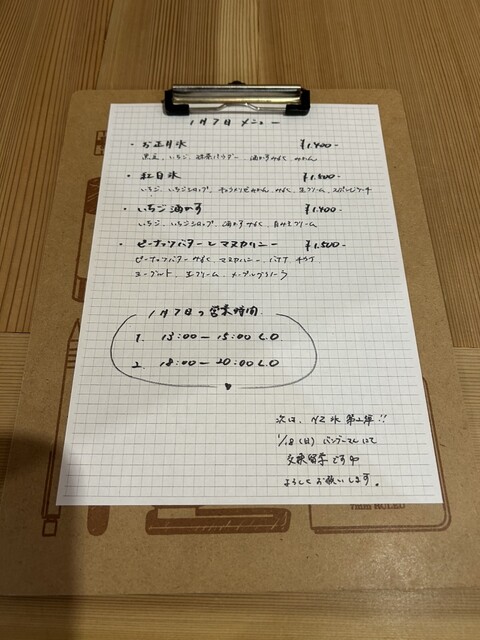 1月7日 メニュー
・お正月氷 ¥1.400-
黒豆、いちご、抹茶パウダー、酒かすみるく、みかん
・紅白氷 ¥1.500-
いちご、いちごシロップ、みるく、生クリーム、スポンジケーキ
・いちご酒かす ¥1.400-
いちご、いちごシロップ、酒かすみるく、自みるクリーム
・ピーナッツバターとマヌカハニー ¥1.500-
ピーナッツバターみるく、マヌカハニー、バナナ、チョコ
ヨーグルト、生クリーム、メープルグラノーラ
1月7日の営業時間
1. 13:00 ー 15:00 L.O
2. 18:00 ー 20:00 L.O
次は、NZ氷 第2弾!!
1/18(日) にて
交換留学です
よろしくお願いします。
RULED